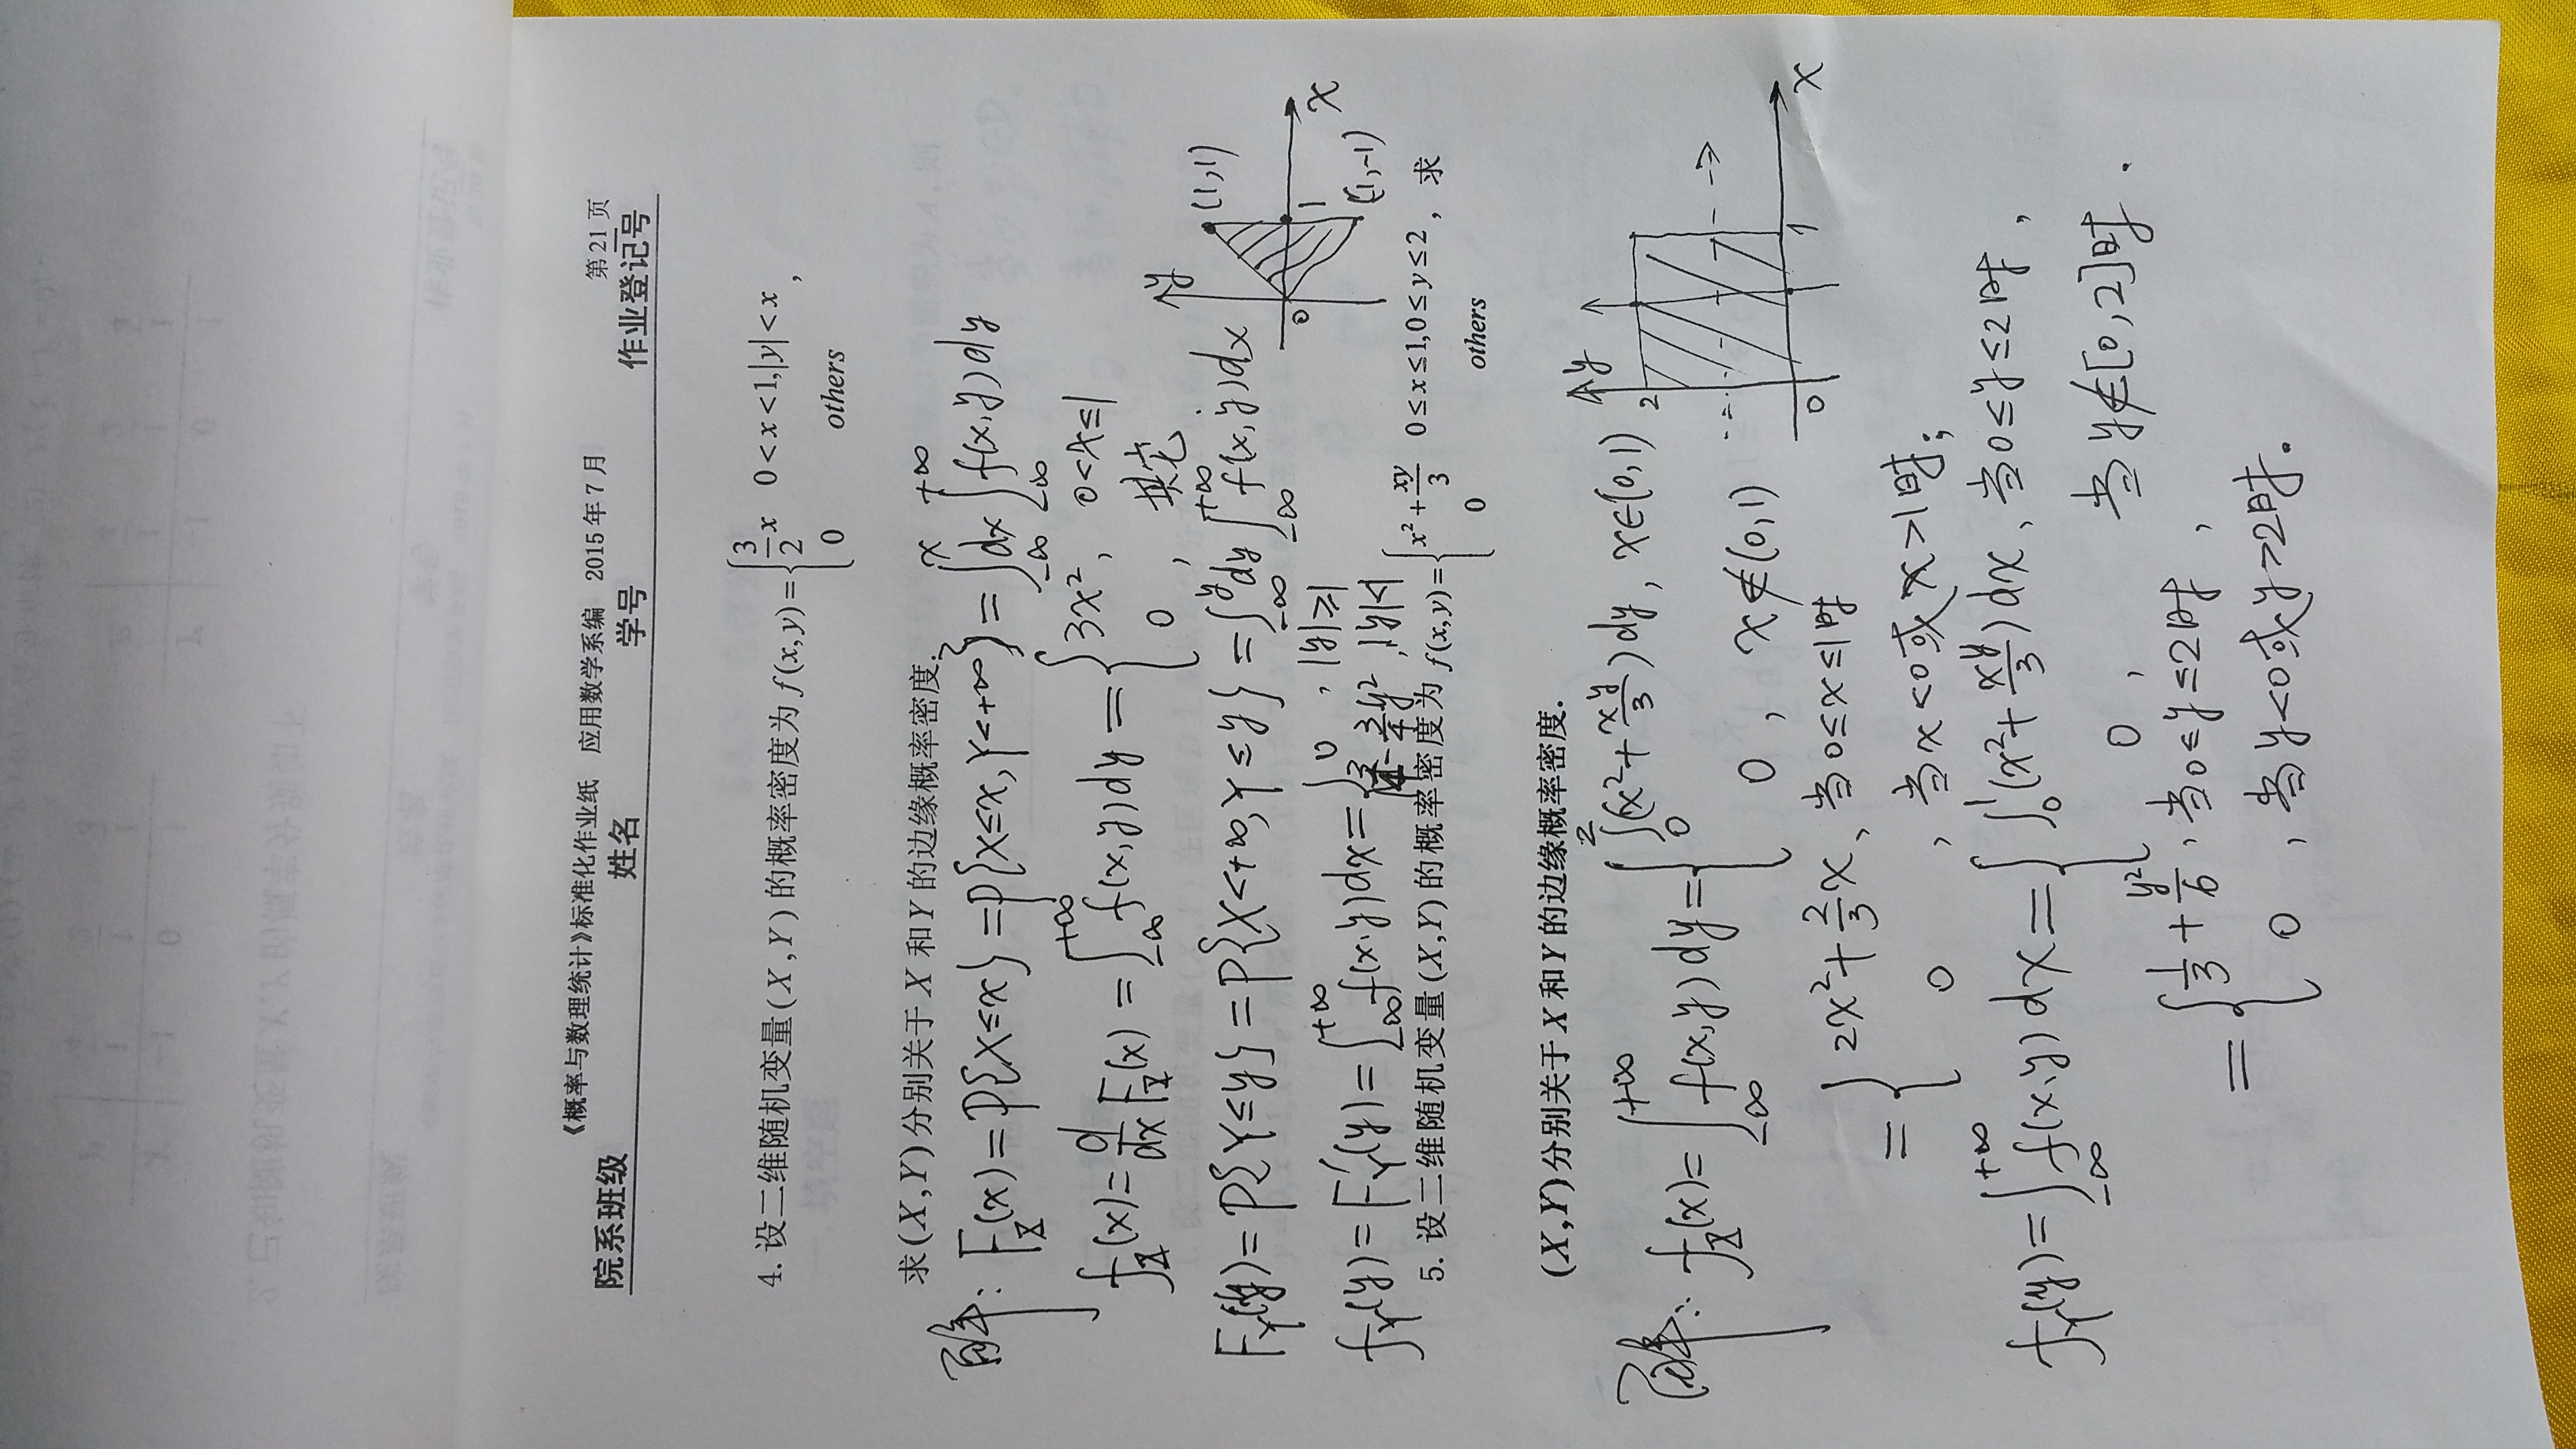 《概率与数理统计》标准化作业纸 应用数学系编 2015年7月 第21页
院系班级 姓名 学号 作业登记号
4. 设二维随机变量(X,Y)的概率密度为 f(x,y)={ 3/2 x 0<x<1,|y|<x ,
0 others
求(X,Y)分别关于X和Y的边缘概率密度.
解: F_X(x)=P{X≤x}=P{X≤x,Y<+∞}=∫_{-∞}^{x}dx∫_{-∞}^{+∞}f(x,y)dy
f_X(x)=d/dx F_X(x)=∫_{-∞}^{+∞}f(x,y)dy={ 3x², 0<x≤1
0, 其它
y
(1,1)
0 1 x
(1,-1)
F_Y(y)=P{Y≤y}=P{X<+∞,Y≤y}=∫_{-∞}^{y}dy∫_{-∞}^{+∞}f(x,y)dx
f_Y(y)=F'_Y(y)=∫_{-∞}^{+∞}f(x,y)dx={ 0, |y|≥1
3/4-3/4y², |y|<1
5. 设二维随机变量(X,Y)的概率密度为 f(x,y)={ x²+xy/3 0≤x≤1,0≤y≤2 , 求
0 others
(X,Y)分别关于X和Y的边缘概率密度.
解: f_X(x)=∫_{-∞}^{+∞}f(x,y)dy={ ∫_0^2(x²+xy/3)dy, x∈(0,1)
0, x∉(0,1)
y
2
0 1 x
={ 2x²+2/3x, 当0≤x≤1时
0, 当x<0或x>1时;
f_Y(y)=∫_{-∞}^{+∞}f(x,y)dx={ ∫_0^1(x²+xy/3)dx, 当0≤y≤2时,
0, 当y∉[0,2]时.
={ 1/3+y²/6, 当0≤y≤2时,
0, 当y<0或y>2时.